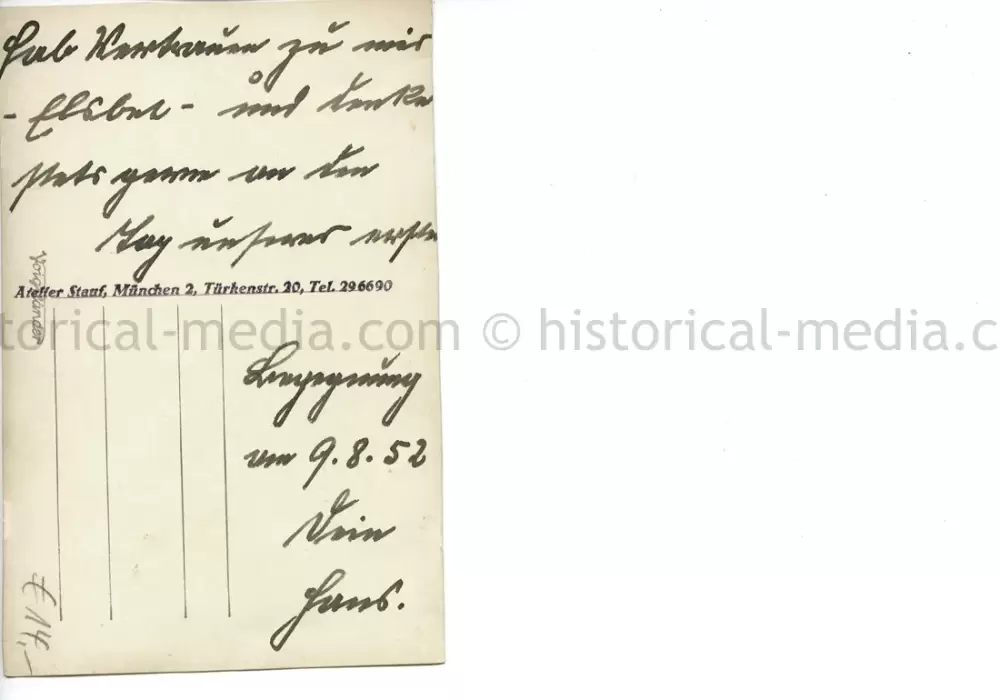 Hab Vertrauen zu mir
- Elsbet - und denke
stets gerne an den
Tag unseres ersten
Atelier Stauf, München 2, Türkenstr. 20, Tel. 296690
Begegnung
am 9.8.52
Dein
Hans.
Voigtländer
€ 14,-
torical-media.com © historical-media.c